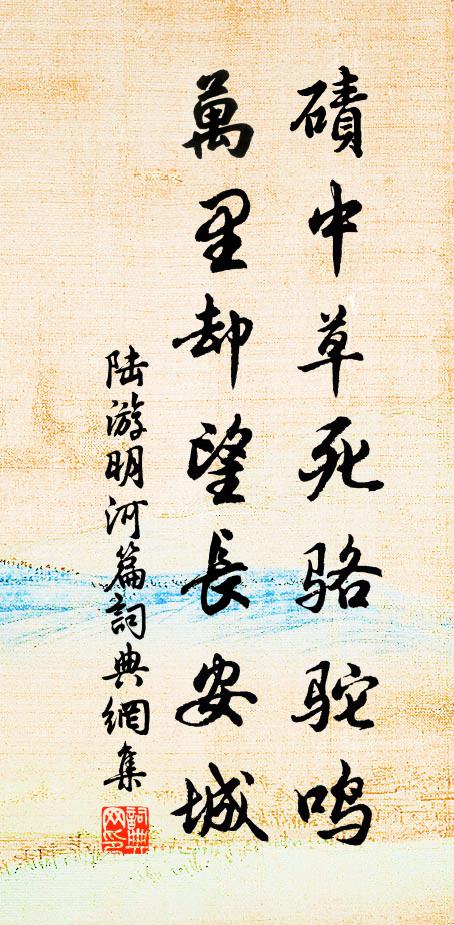 磧中草死骆駝鸣
萬里却望長安城
陆游明河篇詞典網集
詞典網印